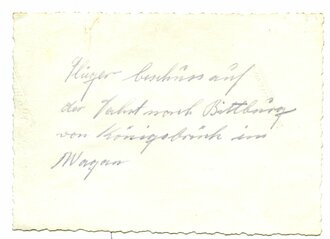 Flieger beschuss auf
der Fahrt nach Bittburg
von Königsbrück im
Wagen